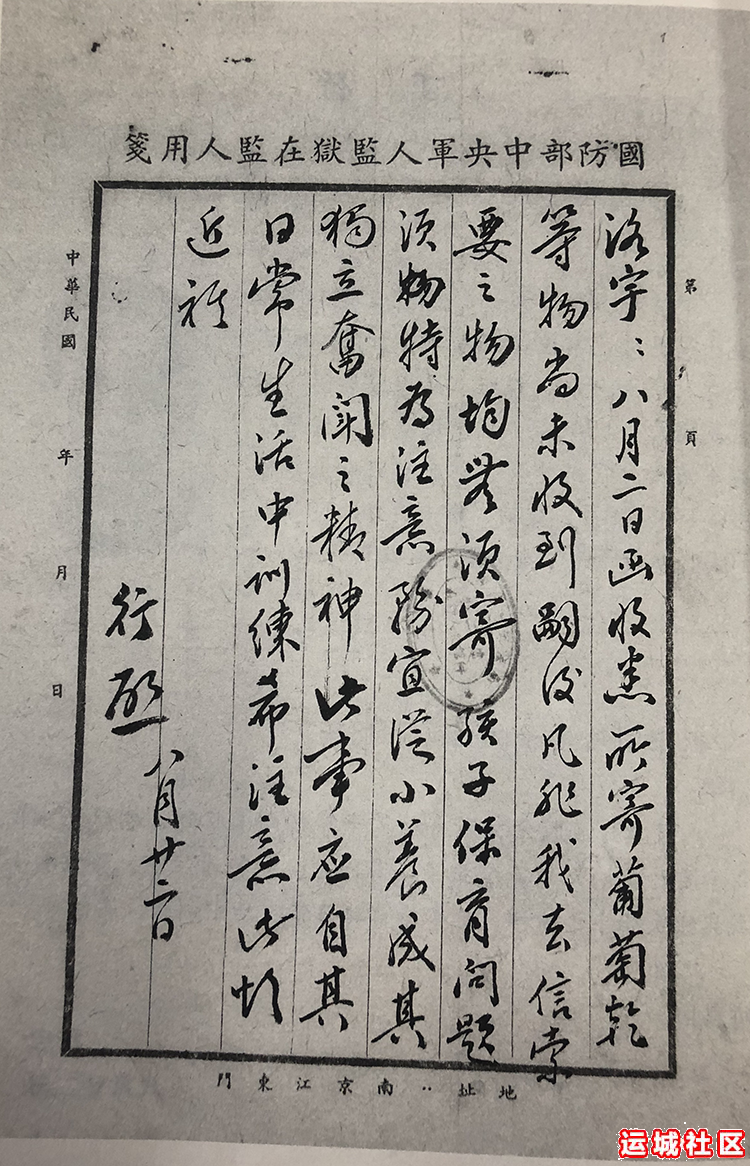 國防部中央軍人監獄在監人用箋
第 頁
洛宇:八月二日函收悉所寄葡萄乾
等物尚未收到嗣後凡非我去信索
要之物均無須寄孩子保育問題
須特為注意務宜從小養成其
獨立奮鬥之精神此事应自其
日常生活中訓練希注意此頌
近祺
行 八月廿二日
中華民國 年 月 日
地址:南京江東門
运城社区